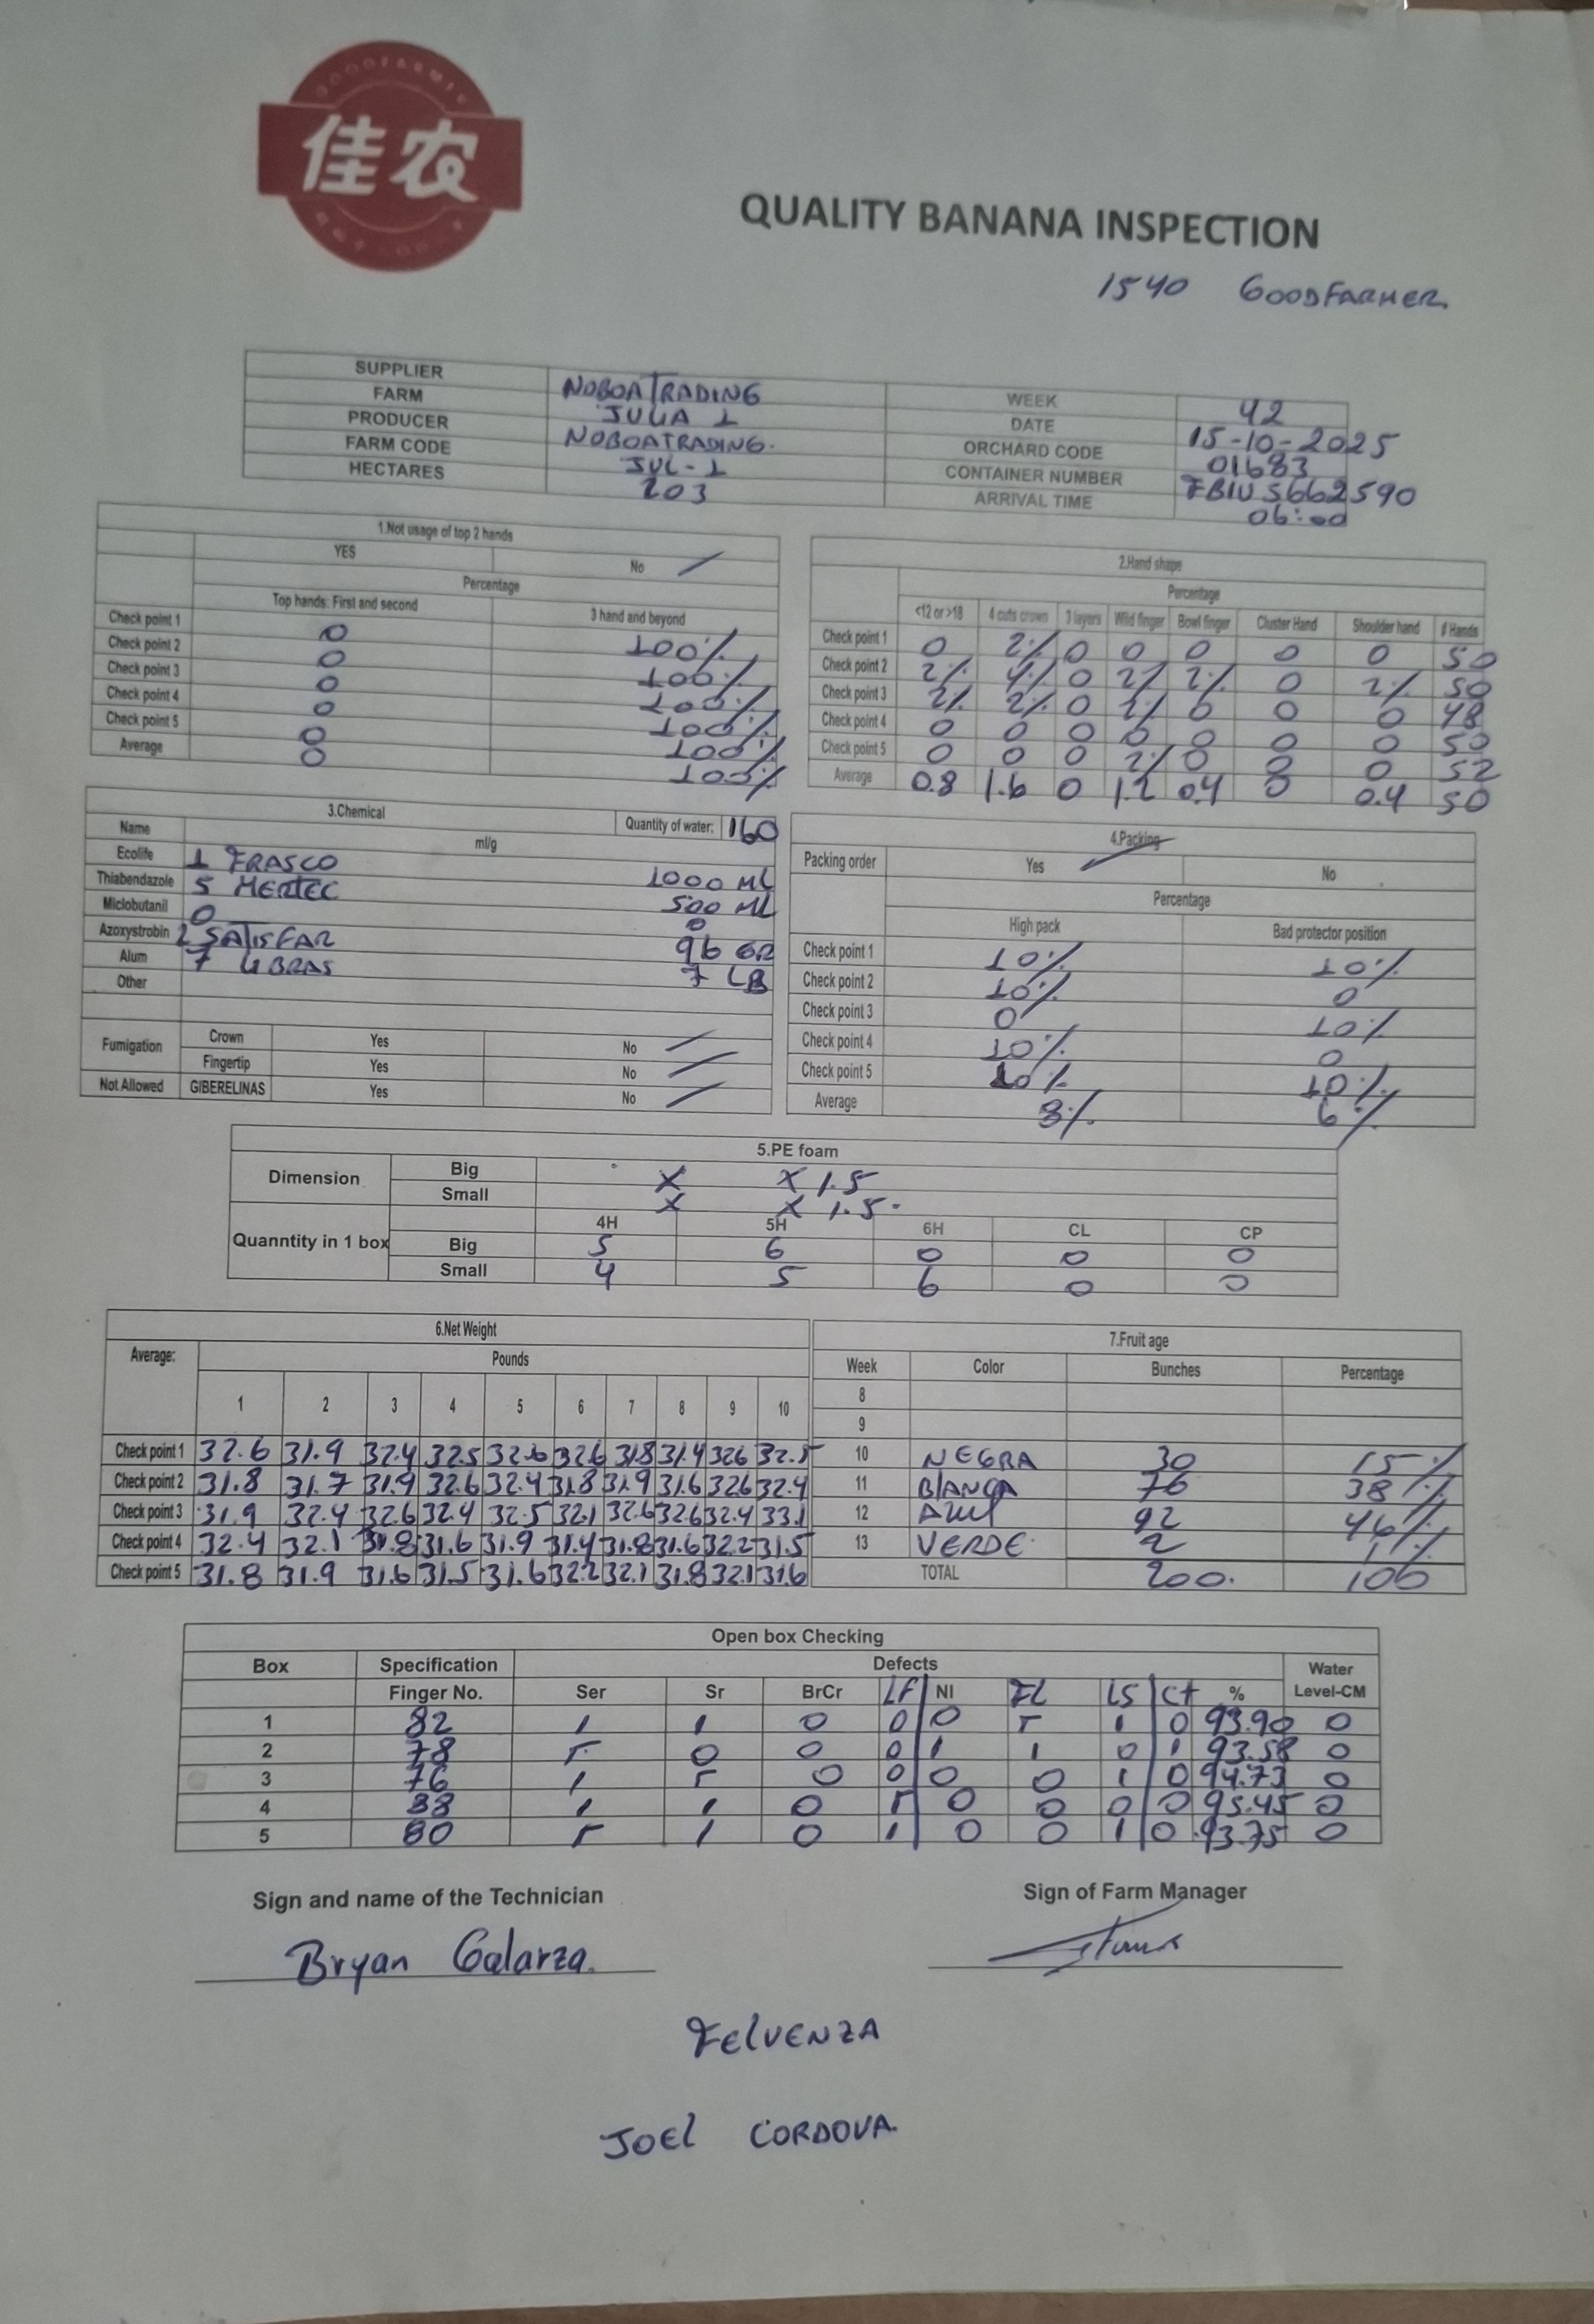 佳农
QUALITY BANANA INSPECTION
1540 GOODFARMER
SUPPLIER NOBOATRADING WEEK 42
FARM JULIA 1 DATE 15-10-2025
PRODUCER NOBOATRADING. ORCHARD CODE 01683
FARM CODE JUL-1 CONTAINER NUMBER FBIU5662590
HECTARES 203 ARRIVAL TIME 06:00
1.Not usage of top 2 hands
YES No /
Percentage
Top hands: First and second 3 hand and beyond
Check point 1 0 100%
Check point 2 0 100%
Check point 3 0 100%
Check point 4 0 100%
Check point 5 0 100%
Average 0 100%
2.Hand shape
Percentage
<12 or >18 4 cuts crown 3 layers Wild finger Bowl finger Cluster Hand Shoulder hand # Hands
Check point 1 0 2% 0 0 0 0 0 50
Check point 2 2% 4% 0 2% 2% 0 2% 50
Check point 3 2% 2% 0 2% 0 0 0 48
Check point 4 0 0 0 0 0 0 0 50
Check point 5 0 0 0 2% 0 0 0 52
Average 0.8 1.6 0 1.2 0.4 0 0.4 50
3.Chemical
Name ml/g Quantity of water: 160
Ecolife 1 FRASCO 1000 ML
Thiabendazole 5 MERTEC 500 ML
Miclobutanil 0 0
Azoxystrobin 2 SATISFAR 96 GR
Alum 7 LIBRAS 7 LB
Other
Fumigation Crown Yes No /
Fingertip Yes No /
Not Allowed GIBERELINAS Yes No /
4.Packing
Packing order Yes No
Percentage
High pack Bad protector position
Check point 1 10% 10%
Check point 2 10% 0
Check point 3 0 10%
Check point 4 10% 0
Check point 5 10% 10%
Average 8% 6%
5.PE foam
Dimension Big X X 1.5
Small X X 1.5
4H 5H 6H CL CP
Quanntity in 1 box Big 5 6 0 0 0
Small 4 5 6 0 0
6.Net Weight
Average: Pounds
1 2 3 4 5 6 7 8 9 10
Check point 1 32.6 31.9 32.4 32.5 32.6 32.6 31.8 31.4 32.6 32.5
Check point 2 31.8 31.7 31.9 32.6 32.4 31.8 31.9 31.6 32.6 32.4
Check point 3 31.9 32.4 32.6 32.4 32.5 32.1 32.6 32.6 32.4 33.1
Check point 4 32.4 32.1 31.8 31.6 31.9 31.4 31.8 31.6 32.2 31.5
Check point 5 31.8 31.9 31.6 31.5 31.6 32.2 32.1 31.8 32.1 31.6
7.Fruit age
Week Color Bunches Percentage
8
9
10 NEGRA 30 15%
11 BlANCA 76 38%
12 AZUl 92 46%
13 VERDE 2 1%
TOTAL 200. 100
Open box Checking
Box Specification Defects Water
Finger No. Ser Sr BrCr LF NI FL LS Ct % Level-CM
1 82 1 1 0 0 0 1 1 0 93.90 0
2 78 1 0 0 0 1 1 0 1 93.58 0
3 76 1 1 0 0 0 0 1 0 94.73 0
4 88 1 1 0 1 0 0 0 0 95.45 0
5 80 1 1 0 1 0 0 1 0 93.75 0
Sign and name of the Technician Sign of Farm Manager
Bryan Galarza.
FElVENZA
JOEl CORDOVA.